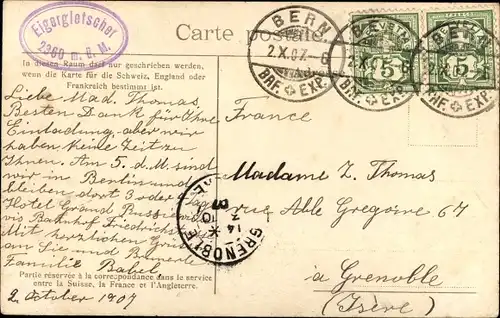 Eigergletscher
2360 m. ü. M.
Carte postale
BERN
2.X.07.-6
BRF. EXP.
HELVETIA
5
5
In diesen Raum darf nur geschrieben werden,
wenn die Karte für die Schweiz, England oder
Frankreich bestimmt ist.
Liebe Mad. Thomas,
Besten Dank für Ihre
Einladung, aber wir
haben keine Zeit zu
Ihnen. Am 5. d. M. sind
wir in Berlin und
bleiben dort 3 oder 4
Tage
Hotel Grand Russ
vis Bahnhof Friedrichs
Mit herzlichen Grüs
an Sie und
Familie Babel
Partie réservée à la correspondance dans le service
entre la Suisse, la France et l'Angleterre.
2. October 1907
France
Madame Z. Thomas
rue Abbé Grégoire 67
à Grenoble
(Isère)
GRENOBLE
14
3 10